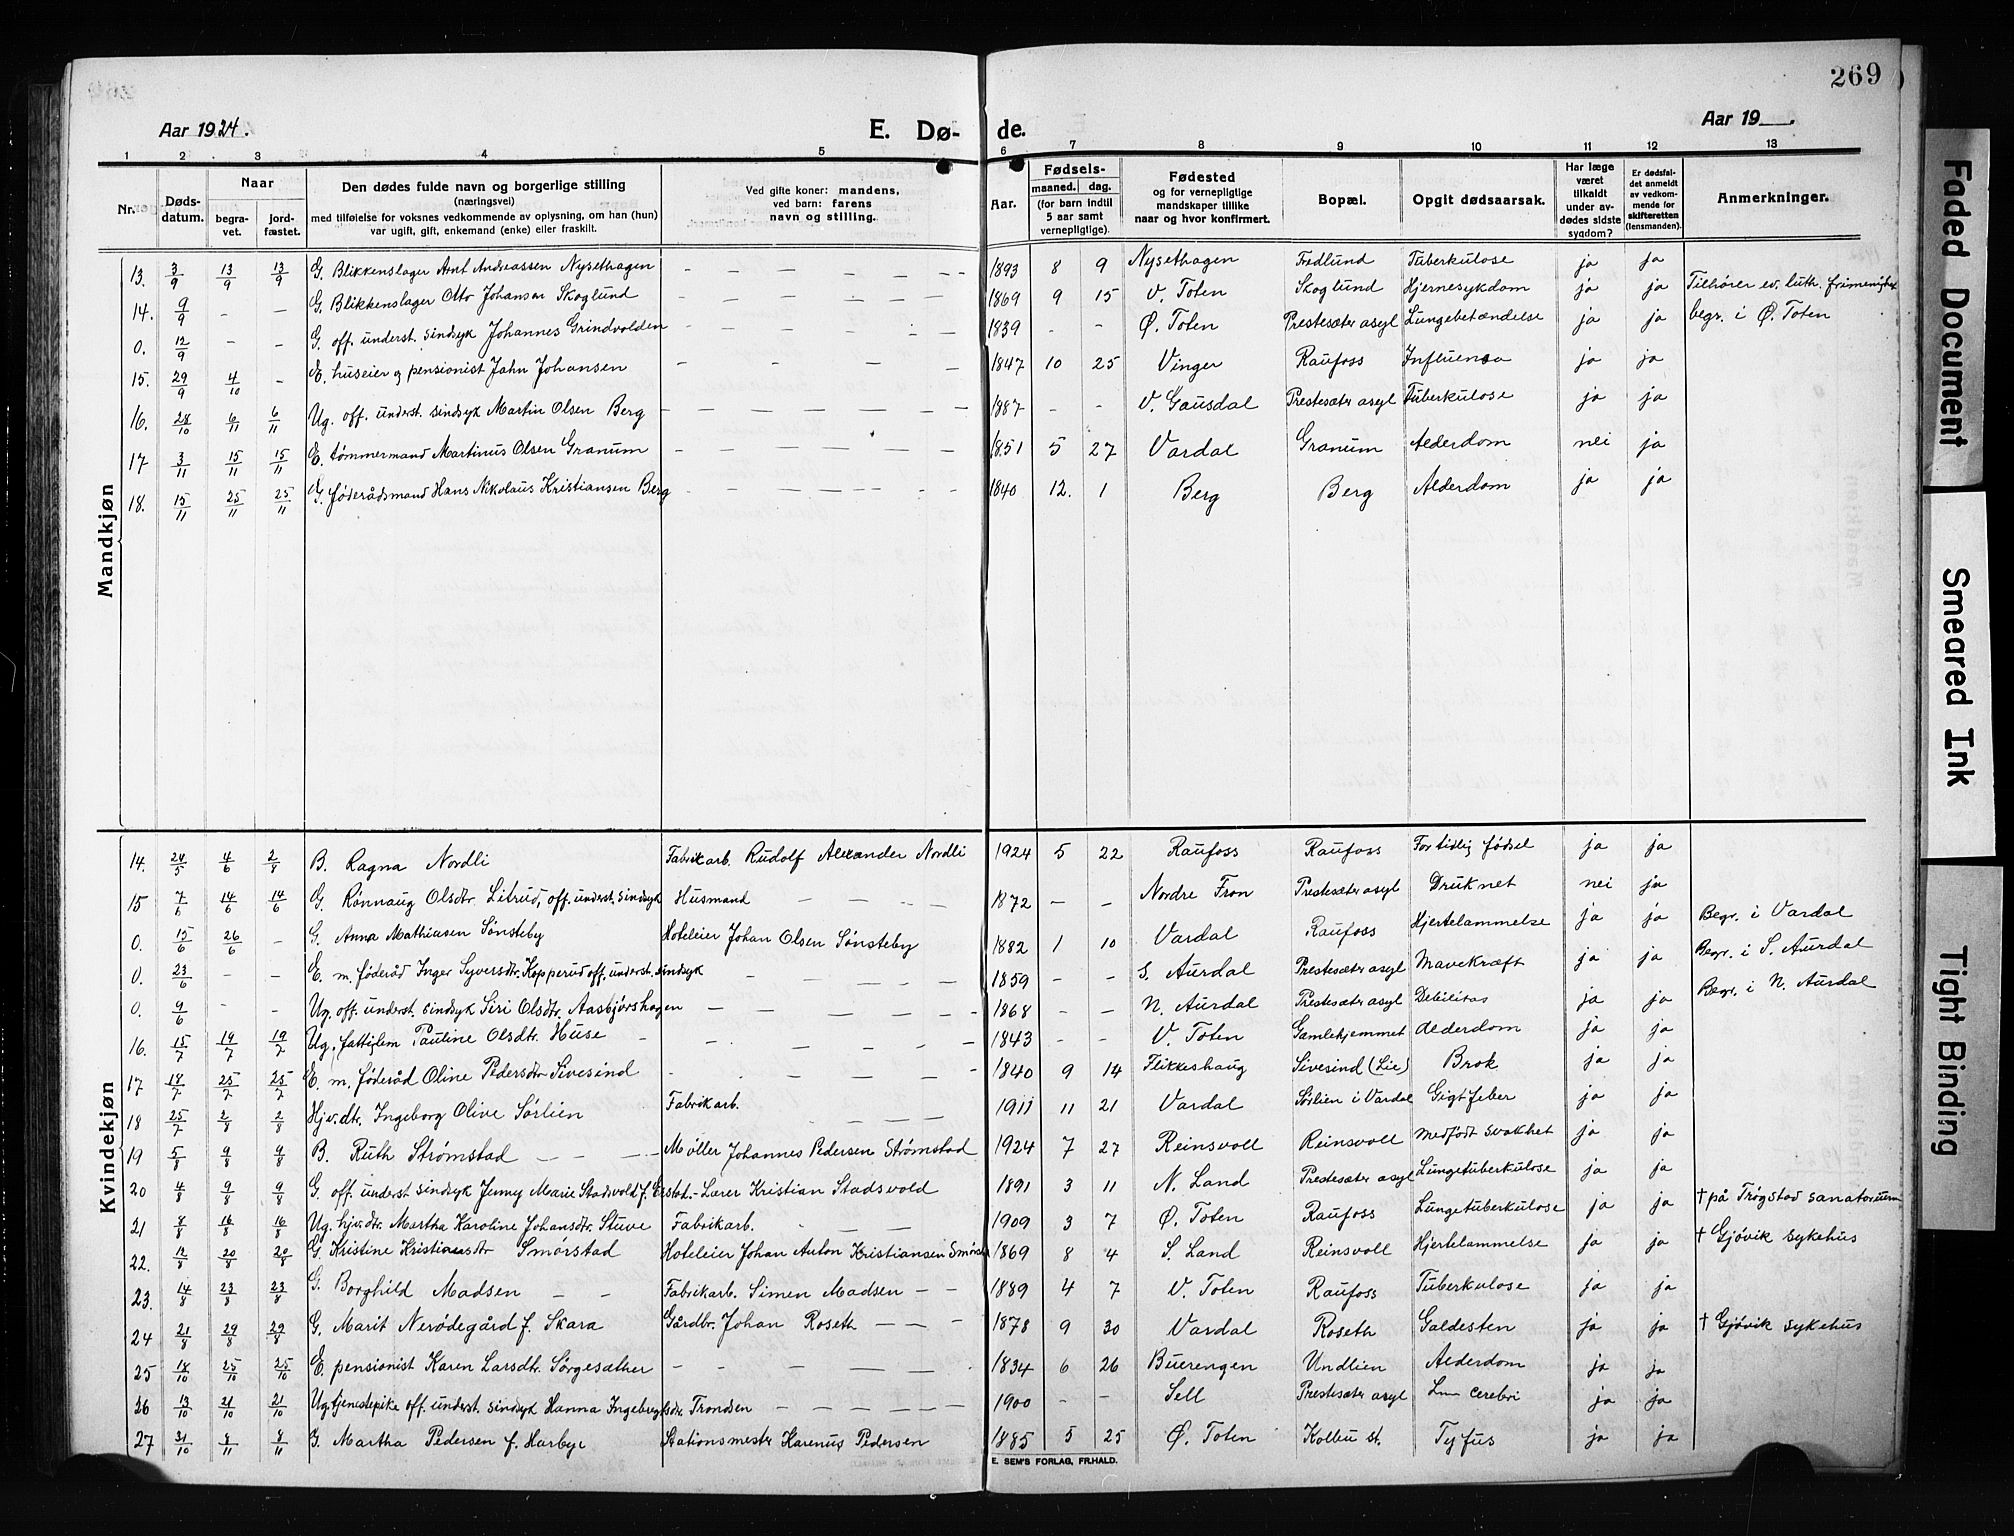 269
Aar 1924.
E. Dø-
de.
Aar 19 .
1 2 3 4 5 6 7 8 9 10 11 12 13
Nr.
Døds-
datum.
Naar
begra-
vet.
jord-
fæstet.
Den dødes fulde navn og borgerlige stilling
(næringsvei)
med tilføielse for voksnes vedkommende av oplysning, om han (hun)
var ugift, gift, enkemand (enke) eller fraskilt.
Ved gifte koner: mandens,
ved barn: farens
navn og stilling.
Aar.
Fødsels-
maaned. dag.
(for barn indtil
5 aar samt
vernepligtige).
Fødested
og for vernepligtige
mandskaper tillike
naar og hvor konfirmert.
Bopæl.
Opgit dødsaarsak.
Har læge
været
tilkaldt
under av-
dødes sidste
sygdom?
Er dødsfal-
det anmeldt
av vedkom-
mende for
skifteretten
(lensmanden).
Anmerkninger.
Mandkjøn
13. 3/9 13/9 13/9 G. Blikkenslager Arnt Andreassen Nysethagen - - - - - - 1893 8 9 Nysethagen Fredlund Tuberkulose ja ja
14. 9/9 - - G. Blikkenslager Otto Johansen Skoglund - - - - - 1869 9 15 V. Toten Skoglund Hjernesykdom ja ja Tilhører ev. luth. frimenighet
0. 12/9 - - G. off. underst. sindsyk Johannes Grindvolden - - - - - 1839 - - Ø. Toten Prestesæter asyl Lungebetændelse ja ja begr. i Ø. Toten
15. 29/9 4/10 - E. huseier og pensionist Jahn Johansen - - - - - 1847 10 25 Vinger Raufoss Influensa ja ja
16. 28/10 6/11 6/11 Ug. off. underst. sindsyk Martin Olsen Berg - - - - - - 1887 - - V. Gausdal Prestesæter asyl Tuberkulose ja ja
17 3/11 15/11 15/11 E. tømmermand Martinus Olsen Granum - - - - - - 1851 5 27 Vardal Granum Alderdom nei ja
18. 15/11 25/11 25/11 G. føderådsmand Hans Nikolaus Kristiansen Berg - - - - - 1840 12. 1 Berg Berg Alderdom ja ja
Kvindekjøn
14. 24/5 4/6 2/8 B. Ragna Nordli Fabrikarb. Rudolf Alexander Nordli 1924 5 22 Raufoss Raufoss For tidlig fødsel ja ja
15 7/6 14/6 14/6 G. Rønnaug Olsdtr. Litrud, off. underst. sindsyk Husmand - - - - 1872 - - Nordre Fron Prestesæter asyl Druknet nei ja
0. 15/6 26/6 - G. Anna Mathiasen Sønsteby Hoteleier Johan Olsen Sønsteby 1882 1 10 Vardal Raufoss Hjertelammelse ja ja Begr. i Vardal
0. 23/6 - - E. m. føderåd Inger Syversdtr. Kopperud off. underst. sindsyk - - - - 1859 - - S. Aurdal Prestesæter asyl Mavekræft ja ja Begr. i S. Aurdal
0. 9/6 - - Ug. off. underst. sindsyk Siri Olsdtr. Aasbjørshagen - - - - - 1868 - - N. Aurdal Prestesæter asyl Debilitas ja ja Begr. i N. Aurdal
16. 15/7 19/7 19/7 Ug. fattiglem Pauline Olsdtr. Huse - - - - - - 1843 - - V. Toten Gamlehjemmet Alderdom ja ja
17 18/7 25/7 25/7 E. m. føderåd Oline Pedersdtr. Sivesind - - - - - - 1840 9 14 Flikkeshaug Sivesind (Lie) Brok ja ja
18 25/7 2/8 2/8 Hjv. dtr. Ingeborg Olive Sørlien Fabrikarb. - - - 1911 11 21 Vardal Sørlien i Vardal Gigtfeber ja ja
19 5/8 9/8 9/8 B. Ruth Strømstad - - - - Møller Johannes Pedersen Strømstad 1924 7 27 Reinsvoll Reinsvoll Medfødt svakhet ja ja
20 4/8 9/8 9/8 G. off. underst. sindsyk Jenny Marie Stadsvold Lærer Kristian Stadsvold 1891 3 11 N. Land Prestesæter asyl Lungetuberkulose ja ja
21 8/8 16/8 16/8 Ug. hjv. dtr. Martha Karoline Johansdtr. Stuve Fabrikarb. - - - 1909 3 7 Ø. Toten Raufoss Lungetuberkulose ja ja † på Trøgstad sanatorium
22. 12/8 20/8 20/8 G. Kristine Kristiansdtr Smørstad Hoteleier Johan Anton Kristiansen 1869 8 4 S. Land Reinsvoll Hjertelammelse ja ja † Gjøvik sykehus
23. 14/8 23/8 23/8 G. Borghild Madsen - - Fabrikarb. Simen Madsen - - 1889 4 7 V. Toten Raufoss Tuberkulose ja ja
24 21/8 29/8 29/8 G. Marit Nerødegård f. Skara Gårdbr. Johan Roseth - - - 1878 9 30 Vardal Roseth Galdesten ja ja † Gjøvik sykehus
25 18/10 25/10 25/10 E pensionist Karen Larsdtr. Sørgesæther - - - - - 1834 6 26 Buerengen Undlien Alderdom ja ja
26 13/10 21/10 21/10 Ug. tjenestepike off. underst. sindsyk Hanna Ingebregtsdtr. Trondsen - - - - - 1900 - - Sell Prestesæter asyl cerebri ja ja
27 31/10 8/11 8/11 G. Martha Pedersen f. Harbye Stationsmester Harenus Pedersen 1885 5 25 Ø. Toten Kolbu st. Tyfus ja ja
E. SEM'S FORLAG, FR.HALD.
Faded Document
Smeared Ink
Tight Binding